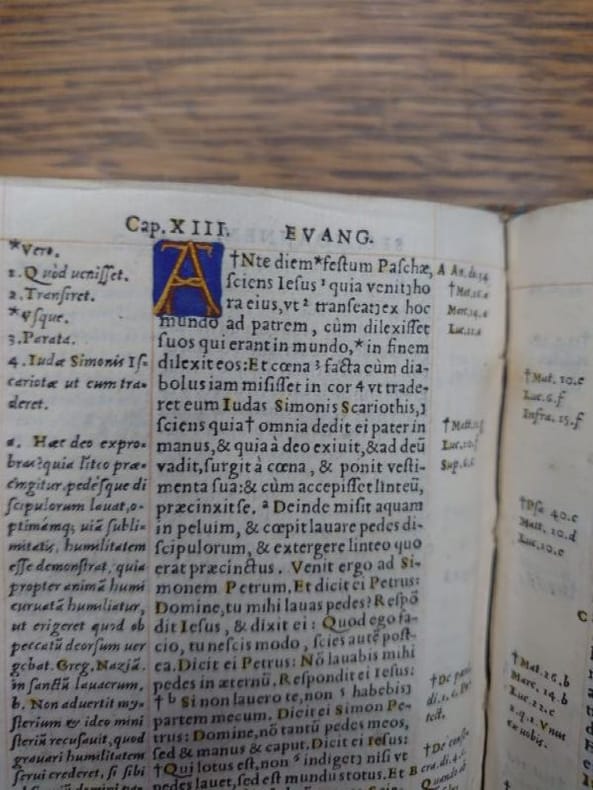 Cap. XIII. EVANG.
*Vero.
1. Quòd uenisset.
2. Transiret.
*Vsque.
3. Parata.
4. Iudæ Simonis Is-
cariotæ ut eum tra-
deret.
a. Hæc deo expro-
bras? quia liteo præ-
cingitur, pedesque di-
scipulorum lauat, o-
ptimamq; uiā subli-
mitatis, humilitatem
esse demonstrat, quia
propter animā humi
curuatā humiliatur,
ut erigeret quod ob
peccatū deorsum uer
gebat. Greg. Naziā.
in sanctū lauacrum.
b. Non aduertit my-
sterium et ideo mini
steriū recusauit, quod
grauari humilitatem
serui crederet, si sibi
A †Nte diem *festum Paschæ,
sciens Iesus ¹ quia venit ho
ra eius, vt ² transeat ex hoc
mundo ad patrem, cùm dilexisset
suos qui erant in mundo, * in finem
dilexit eos: Et cœna ³ facta cùm dia-
bolus iam misisset in cor 4 vt trade-
ret eum Iudas Simonis Scariothis,
sciens quia † omnia dedit ei pater in
manus, & quia à deo exiuit, & ad deū
vadit, surgit à cœna, & ponit vesti-
menta sua: & cùm accepisset linteū,
præcinxit se. ª Deinde misit aquam
in peluim, & cœpit lauare pedes di-
scipulorum, & extergere linteo quo
erat præcinctus. Venit ergo ad Si-
monem Petrum. Et dicit ei Petrus:
Domine, tu mihi lauas pedes? Respō
dit Iesus, & dixit ei: Quod ego fa-
cio, tu nescis modo, scies autē post-
ea. Dicit ei Petrus: Nō lauabis mihi
pedes in æternū. Respondit ei Iesus:
† ᵇ Si non lauero te, non ⁵ habebis
partem mecum. Dicit ei Simon Pe-
trus: Domine, nō tantū pedes meos,
sed & manus & caput. Dicit ei Iesus:
†Qui lotus est, non ⁵ indiget nisi vt
pedes lauet, sed est mundus totus. Et
A
†Mat.
Marc. 14.a
Luc. 22.a
†Matt.
Luc. 10.f
Sup. 6.e
B
†Mat. 10.c
Luc. 6.f
Infra. 15.f
†Psa 40.c
Matt. 10.d
Luc. 10.c
C
†Mat. 26.b
Marc. 14.b
Luc. 22.c
Vnus
ex uobis.